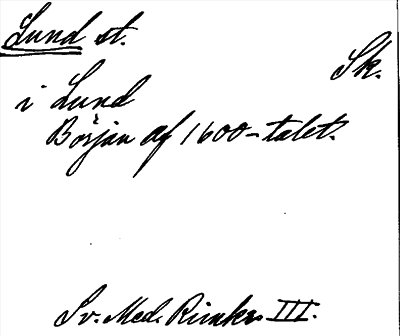 Lund st.
Sk.
i Lund
Början af 1600-talet.
Sv. Med. Runkr. III.